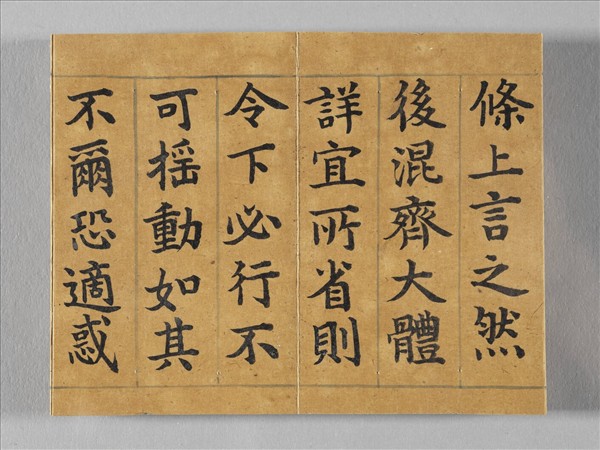 條上言之然
後混齊大體
詳宜所省則
令下必行不
可揺動如其
不爾恐適惑